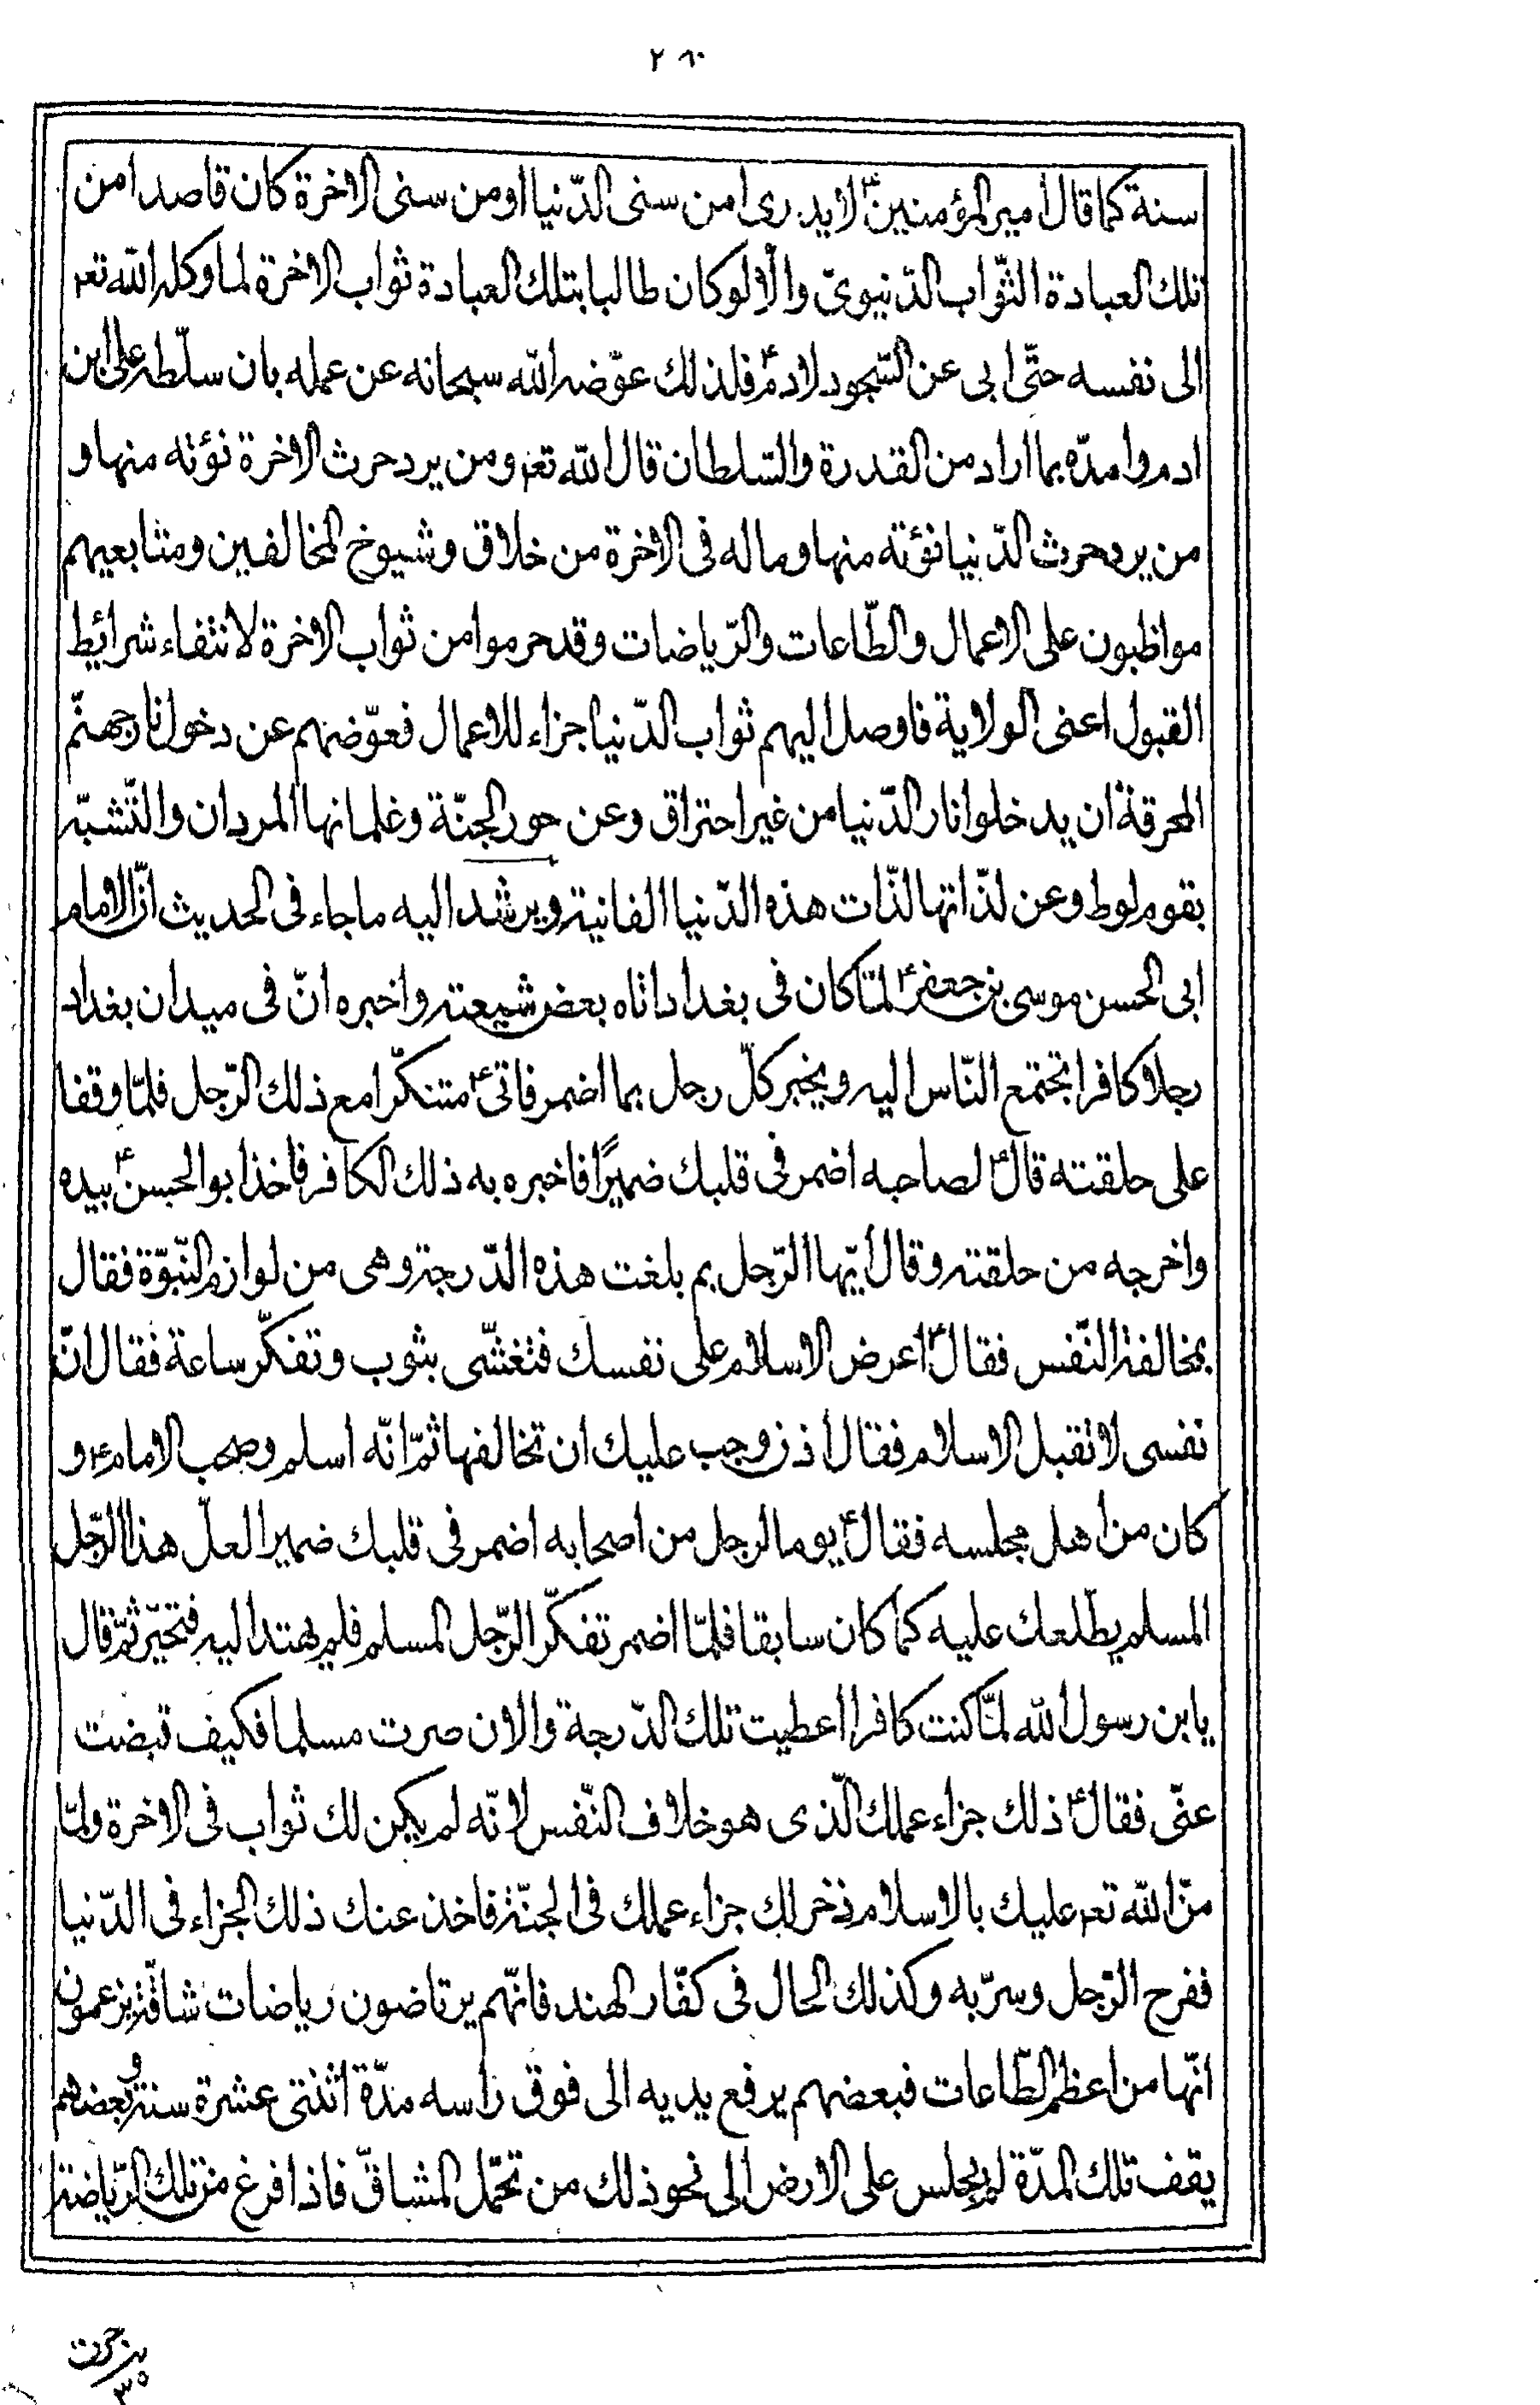 سنة كما قال امير المؤمنين ع لا يدرى امن سنى الدّنيا او من سنى الاخرة كان قاصدا من
تلك العبادة الثّواب الدّنيوىّ والّا لو كان طالبا بتلك العبادة ثواب الاخرة لما وكله اللّه تعه
الى نفسه حتّى ابى عن السّجود لادم ع فلذلك عوّضه اللّه سبحانه عن عمله بان سلّطه على ابن
ادم وامدّه بما اراد من القدرة والسّلطان قال اللّه تعه ومن يرد حرث الاخرة نؤته منها و
من يرد حرث الدّنيا نؤته منها وما له فى الاخرة من خلاق وشيوخ المخالفين ومتابعيهم
مواظبون على الاعمال والطّاعات والرّياضات وقد حرموا من ثواب الاخرة لانتفاء شرائط
القبول اعنى الولاية فاوصل اليهم ثواب الدّنيا جزاء للاعمال فعوّضهم عن دخول نار جهنّم
المحرقة ان يدخلوا نار الدّنيا من غير احتراق وعن حور الجنّة وغلمانها المردان والتّشبّه
بقوم لوط وعن لذّاتها لذّات هذه الدّنيا الفانية ويرشد اليه ما جاء فى الحديث انّ الامام
ابى الحسن موسى بن جعفر ع لمّا كان فى بغداد اتاه بعض شيعته واخبره انّ فى ميدان بغداد
رجلا كافرا تجتمع النّاس اليه ويخبر كلّ رجل بما اضمر فاتى ع متنكّرا مع ذلك الرّجل فلمّا وقفا
على حلقته قال ع لصاحبه اضمر فى قلبك ضميرًا فاخبره به ذلك الكافر فاخذ ابو الحسن ع بيده
واخرجه من حلقته وقال ايّها الرّجل بم بلغت هذه الدّرجة وهى من لوازم النّبوّة فقال
بمخالفة النّفس فقال ع اعرض الاسلام على نفسك فتغشّى بثوب وتفكّر ساعة فقال انّ
نفسى لا تقبل الاسلام فقال اذن وجب عليك ان تخالفها ثمّ انّه اسلم وصحب الامام ع و
كان من اهل مجلسه فقال ع يوما لرجل من اصحابه اضمر فى قلبك ضميرا لعلّ هذا الرّجل
المسلم يطّلعك عليه كما كان سابقا فلمّا اضمر تفكّر الرّجل المسلم فلم يهتد اليه فتحيّر ثمّ قال
يا بن رسول اللّه لمّا كنت كافرا اعطيت تلك الدّرجة والان صرت مسلما فكيف قبضت
عنّى فقال ع ذلك جزاء عملك الّذى هو خلاف النّفس لانّه لم يكن لك ثواب فى الاخرة ولمّا
منّ اللّه تعه عليك بالاسلام ذخر لك جزاء عملك فى الجنّة فاخذ عنك ذلك الجزاء فى الدّنيا
ففرح الرّجل وسرّ به وكذلك الحال فى كفّار الهند فانّهم يرتاضون رياضات شاقّة يزعمون
انّها من اعظم الطّاعات فبعضهم يرفع يديه الى فوق راسه مدّة اثنتى عشرة سنة وبعضهم
يقف تلك المدّة لم يجلس على الارض الى نحو ذلك من تحمّل المشاقّ فاذا فرغ من تلك الرّياضة